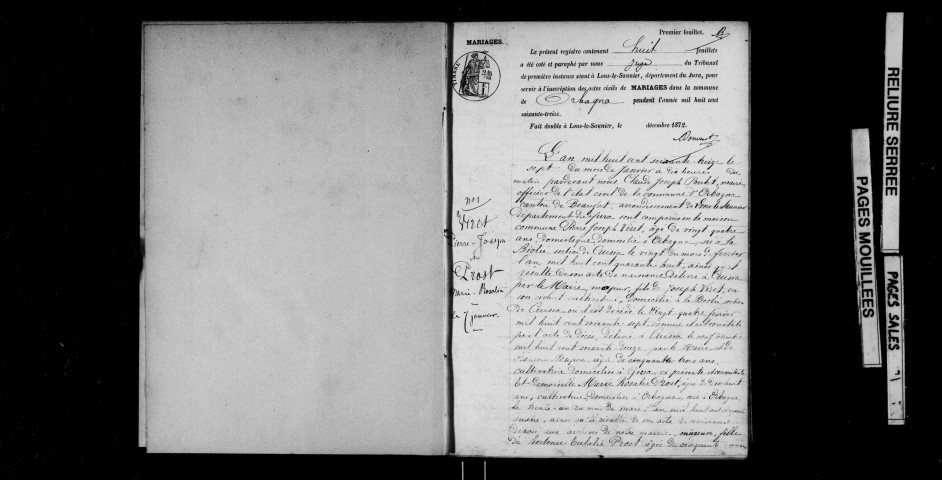 Premier feuillet.
MARIAGES.
Le présent registre contenant huit feuillets
a été coté et paraphé par nous Juge du Tribunal
de première instance séant à Lons-le-Saunier, département du Jura, pour
servir à l'inscription des actes civils de MARIAGES dans la commune
de Orbagna pendant l'année mil huit cent
soixante-treize.
Fait double à Lons-le-Saunier, le décembre 1872.
L'an mil huit cent soixante treize le
sept du mois de Janvier à dix heures du
matin pardevant nous Claude Joseph Poulet, maire
officier de l'état civil de la commune d'Orbagna
canton de Beaufort, arrondissement de Lons le Saunier
département du Jura sont comparus en la maison
commune Pierre Joseph Viret, âgé de vingt quatre
ans, domestique, domicilié à Orbagna, né à la
Biolée section de Cuisia le vingt du mois de février
l'an mil huit cent quarante huit, ainsi qu'il
résulte de son acte de naissance délivré à Cuisia
par le Maire, majeur, fils de Joseph Viret, en
son vivant cultivateur, domicilié à la Biolée section
de Cuisia où il est décédé le vingt quatre février
mil huit cent soixante-sept comme il est constaté
par l'acte de décès, délivré à Cuisia le neuf
mil huit cent soixante douze, par le Maire et de
âgée de cinquante trois ans,
cultivatrice domiciliée à
Et Demoiselle Marie Rosalie Prost, âgée de dix huit
ans, cultivatrice, domiciliée à Orbagna, née à Orbagna
le trente-un du mois de mars l'an mil huit cent cinquante
quatre, ainsi qu'il résulte de son acte de naissance
déposé aux archives de notre mairie, mineure, fille
de Eulalie Prost âgée de cinquante
N°1
Viret
Pierre-Joseph
&
Prost
Marie-Rosalie
le 7 janvier
RELIURE SERREE
PAGES MOUILLEES
PAGES SALES